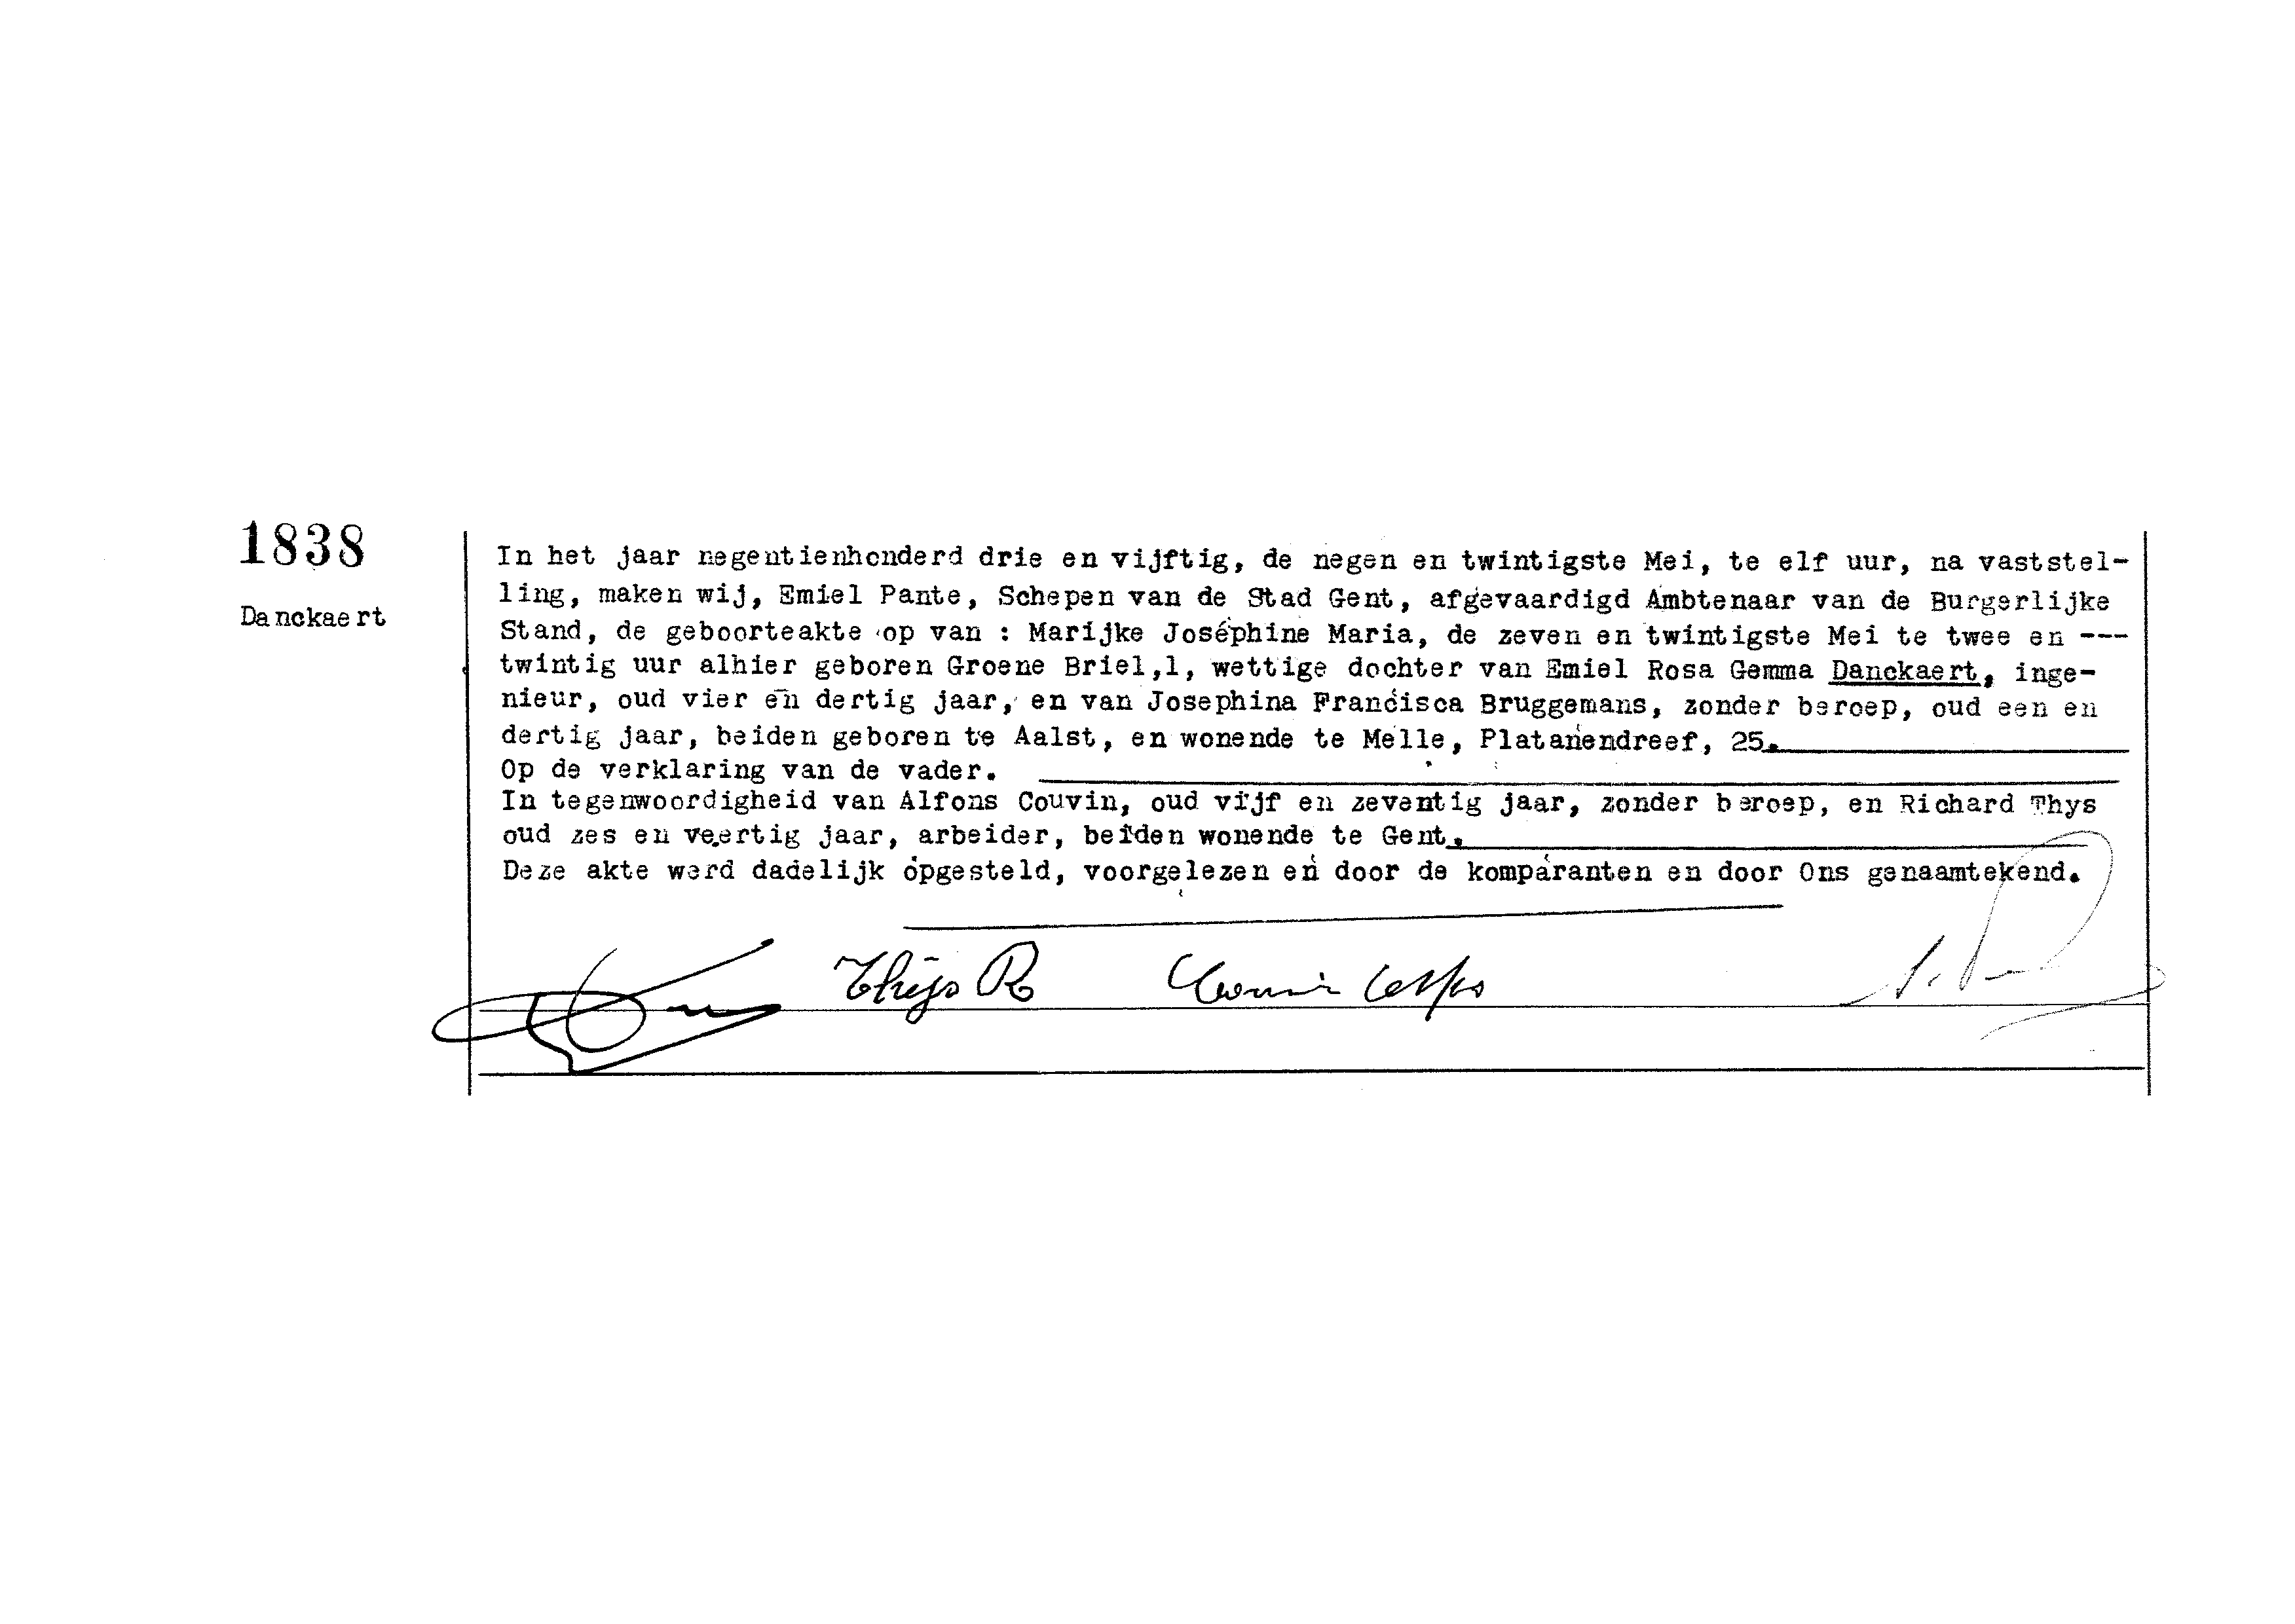 1838
Danckaert
In het jaar negentienhonderd drie en vijftig, de negen en twintigste Mei, te elf uur, na vaststel-
ling, maken wij, Emiel Pante, Schepen van de Stad Gent, afgevaardigd Ambtenaar van de Burgerlijke
Stand, de geboorteakte op van : Marijke Joséphine Maria, de zeven en twintigste Mei te twee en ---
twintig uur alhier geboren Groene Briel,1, wettige dochter van Emiel Rosa Gemma Danckaert, inge-
nieur, oud vier en dertig jaar, en van Josephina Francisca Bruggemans, zonder beroep, oud een en
dertig jaar, beiden geboren te Aalst, en wonende te Melle, Platanendreef, 25.
Op de verklaring van de vader.
In tegenwoordigheid van Alfons Couvin, oud vijf en zeventig jaar, zonder beroep, en Richard Thys
oud zes en veertig jaar, arbeider, beiden wonende te Gent.
Deze akte werd dadelijk opgesteld, voorgelezen en door de komparanten en door Ons genaamtekend.
Thijs R